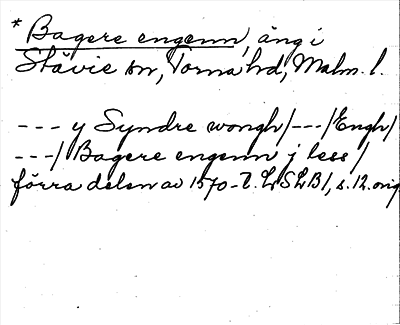 * Bagere engenn, äng i
Stävie sn, Torna hd, Malm. l.
--- y Syndre wongh/---/Engh/
---/ Bagere engenn j less/
förra delen av 1570-t. LSLB1, s.12. orig